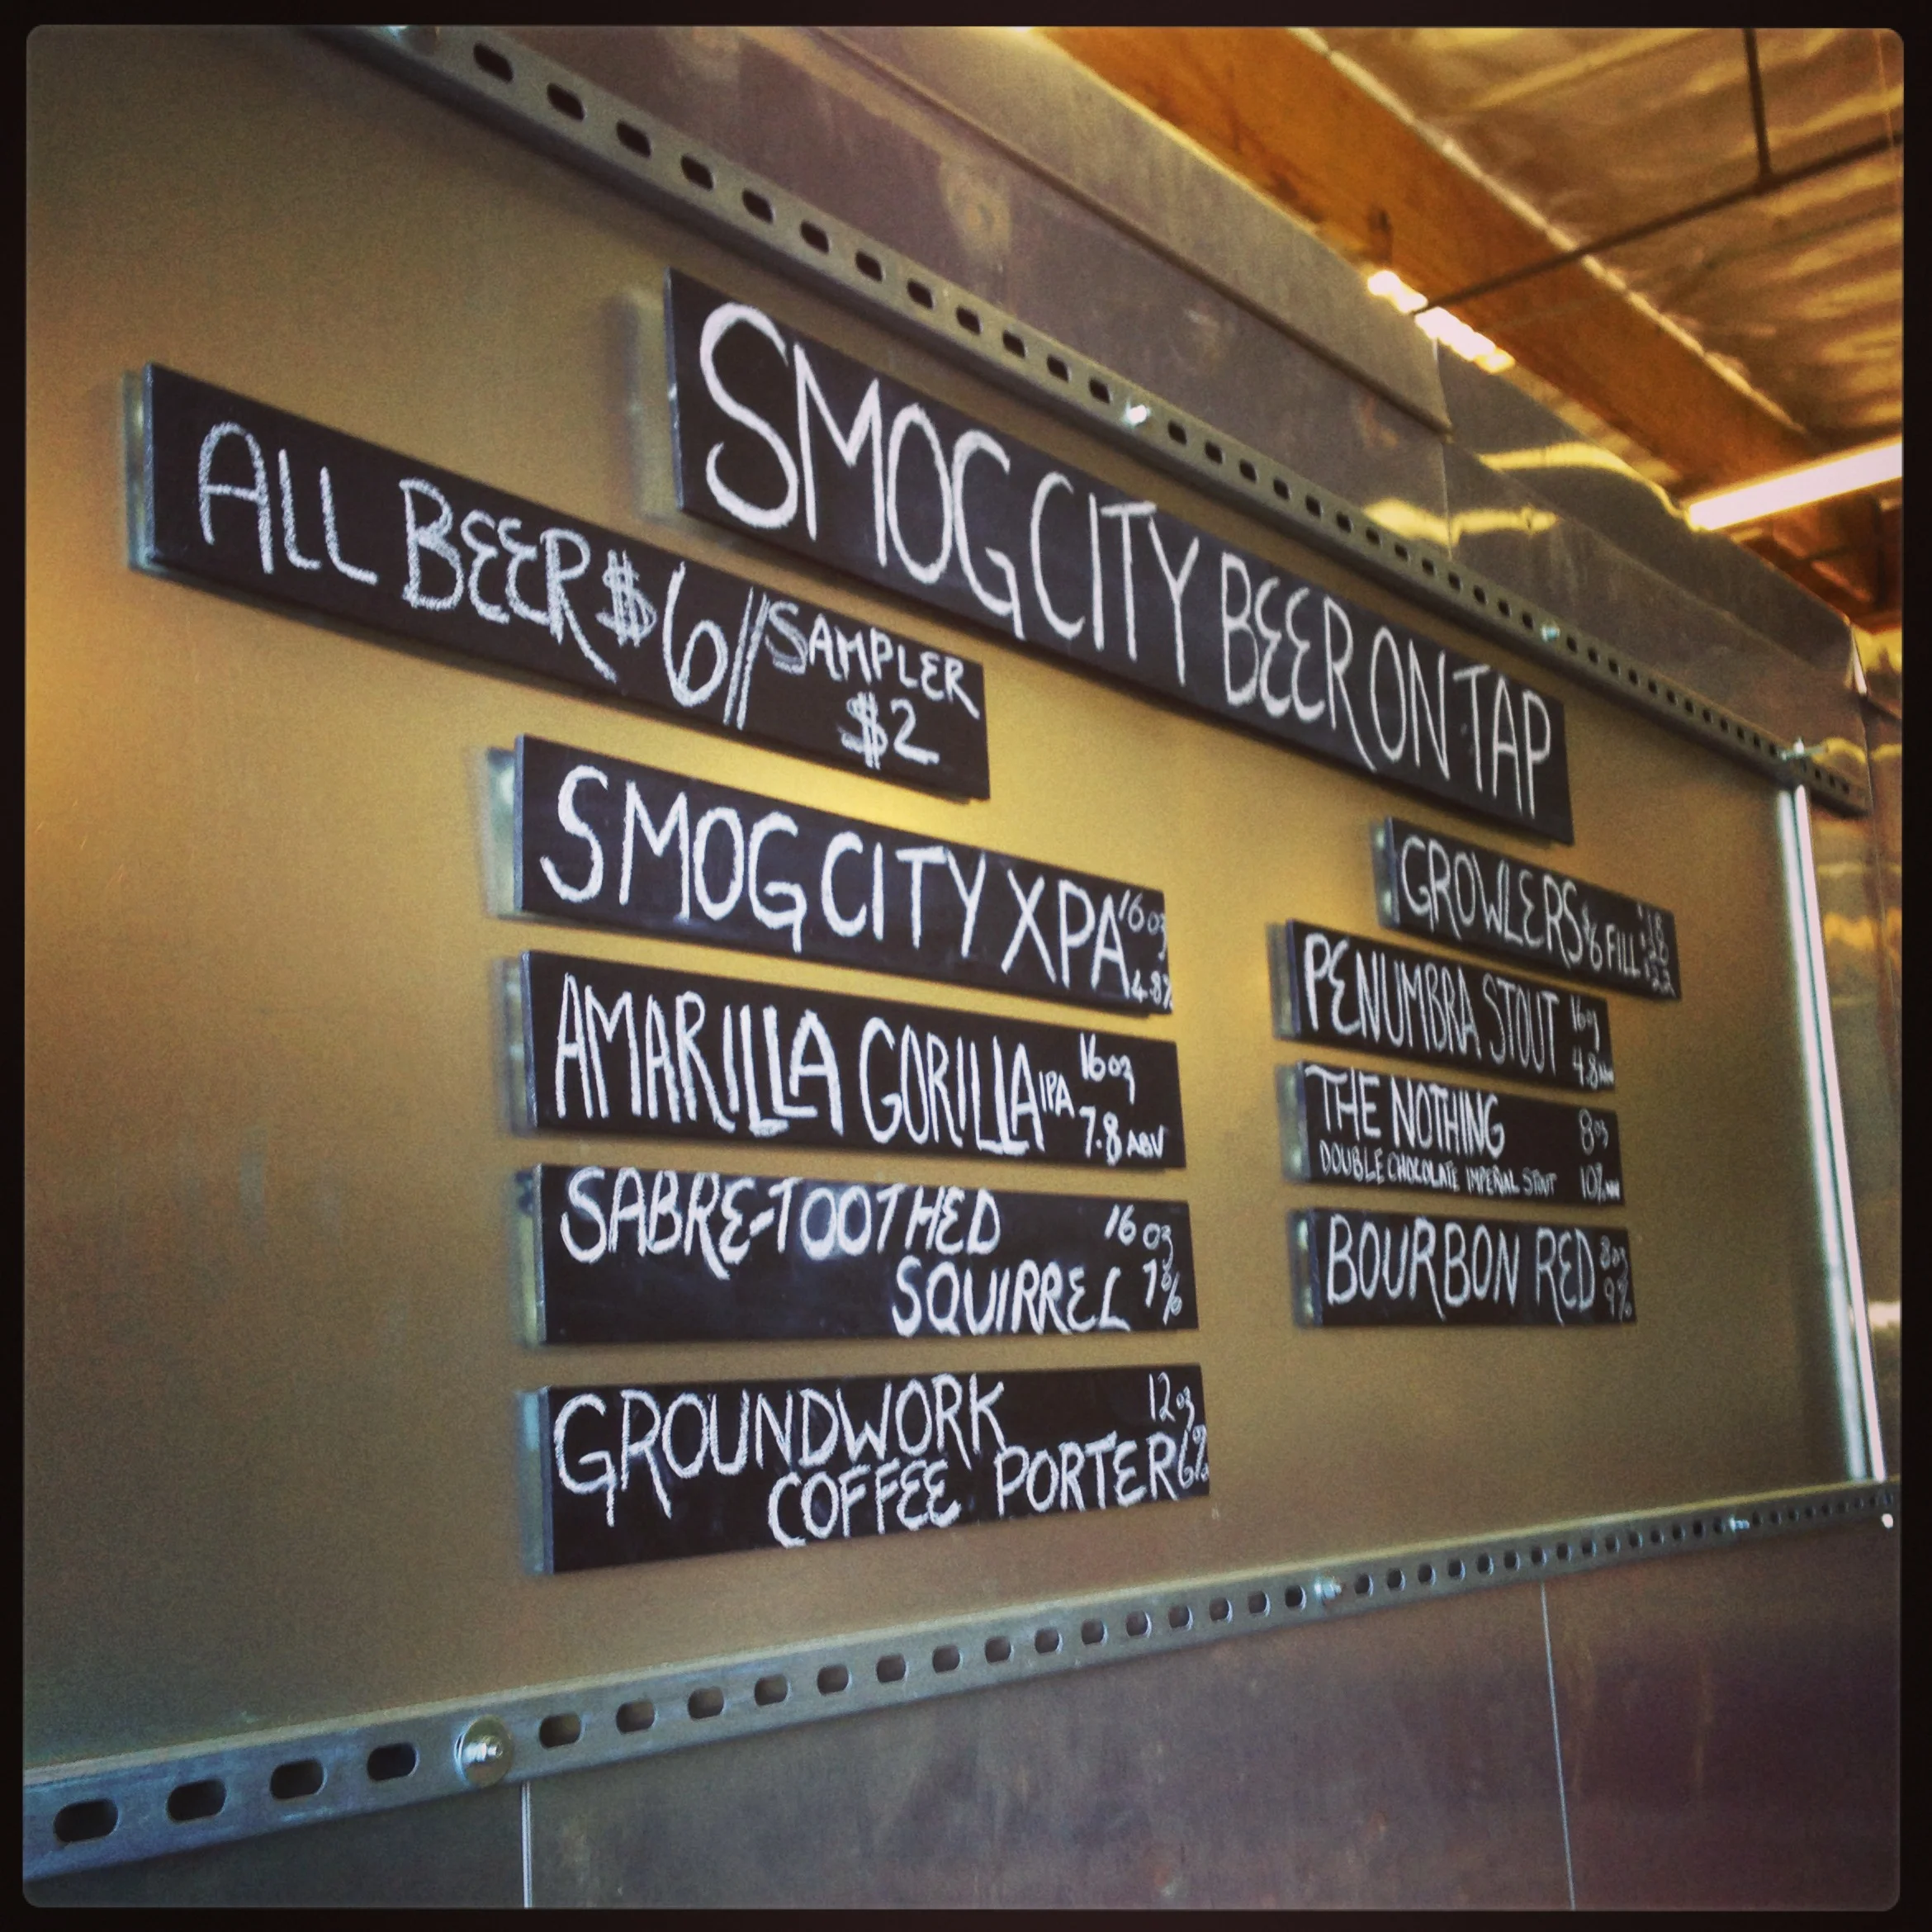 SMOG CITY BEER ON TAP
ALL BEER $6 // SAMPLER
$2
SMOG CITY XPA 16oz
4.8%
AMARILLA GORILLA IPA 16oz
7.8 ABV
SABRE-TOOTHED 16oz
SQUIRREL 7%
GROUNDWORK 12oz
COFFEE PORTER 6%
GROWLERS $6 FILL
PENUMBRA STOUT 16oz
4.8 ABV
THE NOTHING 8oz
DOUBLE CHOCOLATE IMPERIAL STOUT 10% ABV
BOURBON RED 8oz
9%